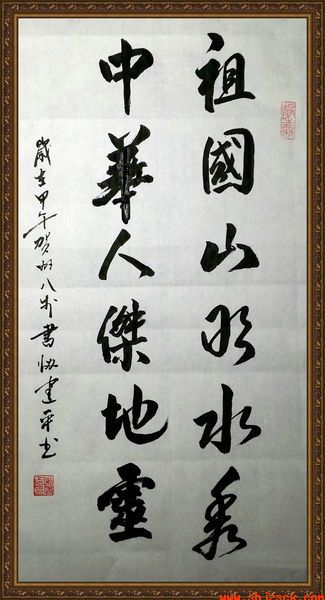 祖國山明水秀
中華人傑地靈
歲在甲午賀州八步書協建平书